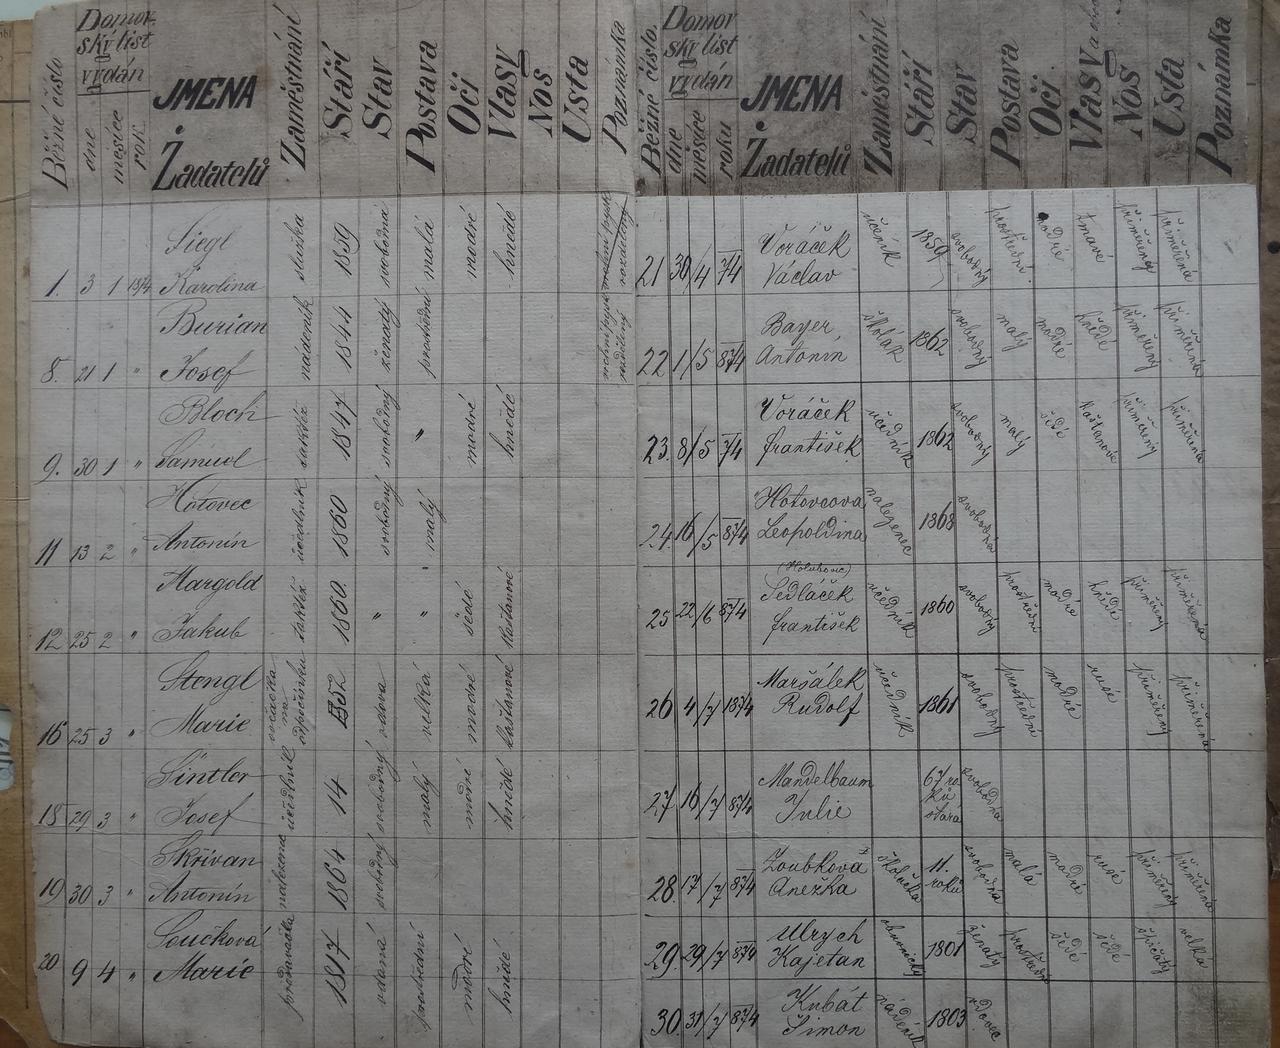 Běžné číslo. Domovský list vydán dne měsíce rok JMENA Žadatelů Zaměstnání Stáří Stav Postava Oči Vlasy Nos Usta Poznámka
1. 3 1 1874 Siegl Karolina služka 1859 svobodná malá modré hnědé
8. 21 1 " Burian Josef nádeník 1844 ženatý prostřední
9. 30 1 " Bloch Samuel taktéž 1847 svobodný " modré hnědé
11 13 2 " Hotovec Antonín učedlník 1860 svobodný malý
12 25 2 " Margold Jakub taktéž 1860. " " šedé kaštanové
16 25 3 " Stengl Marie na odpočinku 1852 vdova velká modré kaštanové
18 29 3 " Sintler Josef učedlník 14 svobodný malý modré hnědé
19 30 3 " Skřivan Antonín 1864 svobodný
20 9 4 " Součková Marie prodavačka 1817 vdaná prostřední modré hnědé
Běžné číslo. Domovský list vydán dne měsíce roku JMENA Žadatelů Zaměstnání Stáří Stav Postava Oči Vlasy Nos Usta Poznámka
21 30/4 74 Voráček Václav učeník 1859 svobodný prostřední modré tmavé přiměřený přiměřená
22 1/5 874 Bayer Antonín školák 1862 svobodný malý modré hnědé přiměřený přiměřená
23. 8/5 74 Voráček František učedník 1862 svobodný malý šedé kaštanové přiměřený přiměřená
24. 16/5 874 Hotovcova Leopoldina nalezenec 1868 svobodná
25 22/6 874 Sedláček František učedník 1860 svobodný prostřední modré hnědé přiměřený přiměřená
26 4/7 1874 Maršálek Rudolf učedník 1861 svobodný prostřední modré rusé přiměřený přiměřená
27 16/7 874 Mandelbaum Julie 67 roků stára svobodna
28. 17/7 874 Zoubková Anežka školačka 11. roků svobodna malá modré rusé přiměřený přiměřená
29. 29/7 874 Ulrych Kajetan obuvnický 1801 ženatý prostřední šedé šedé špičatý velká
30. 31/7 874 Kubát Šimon nádeník 1803 vdovec